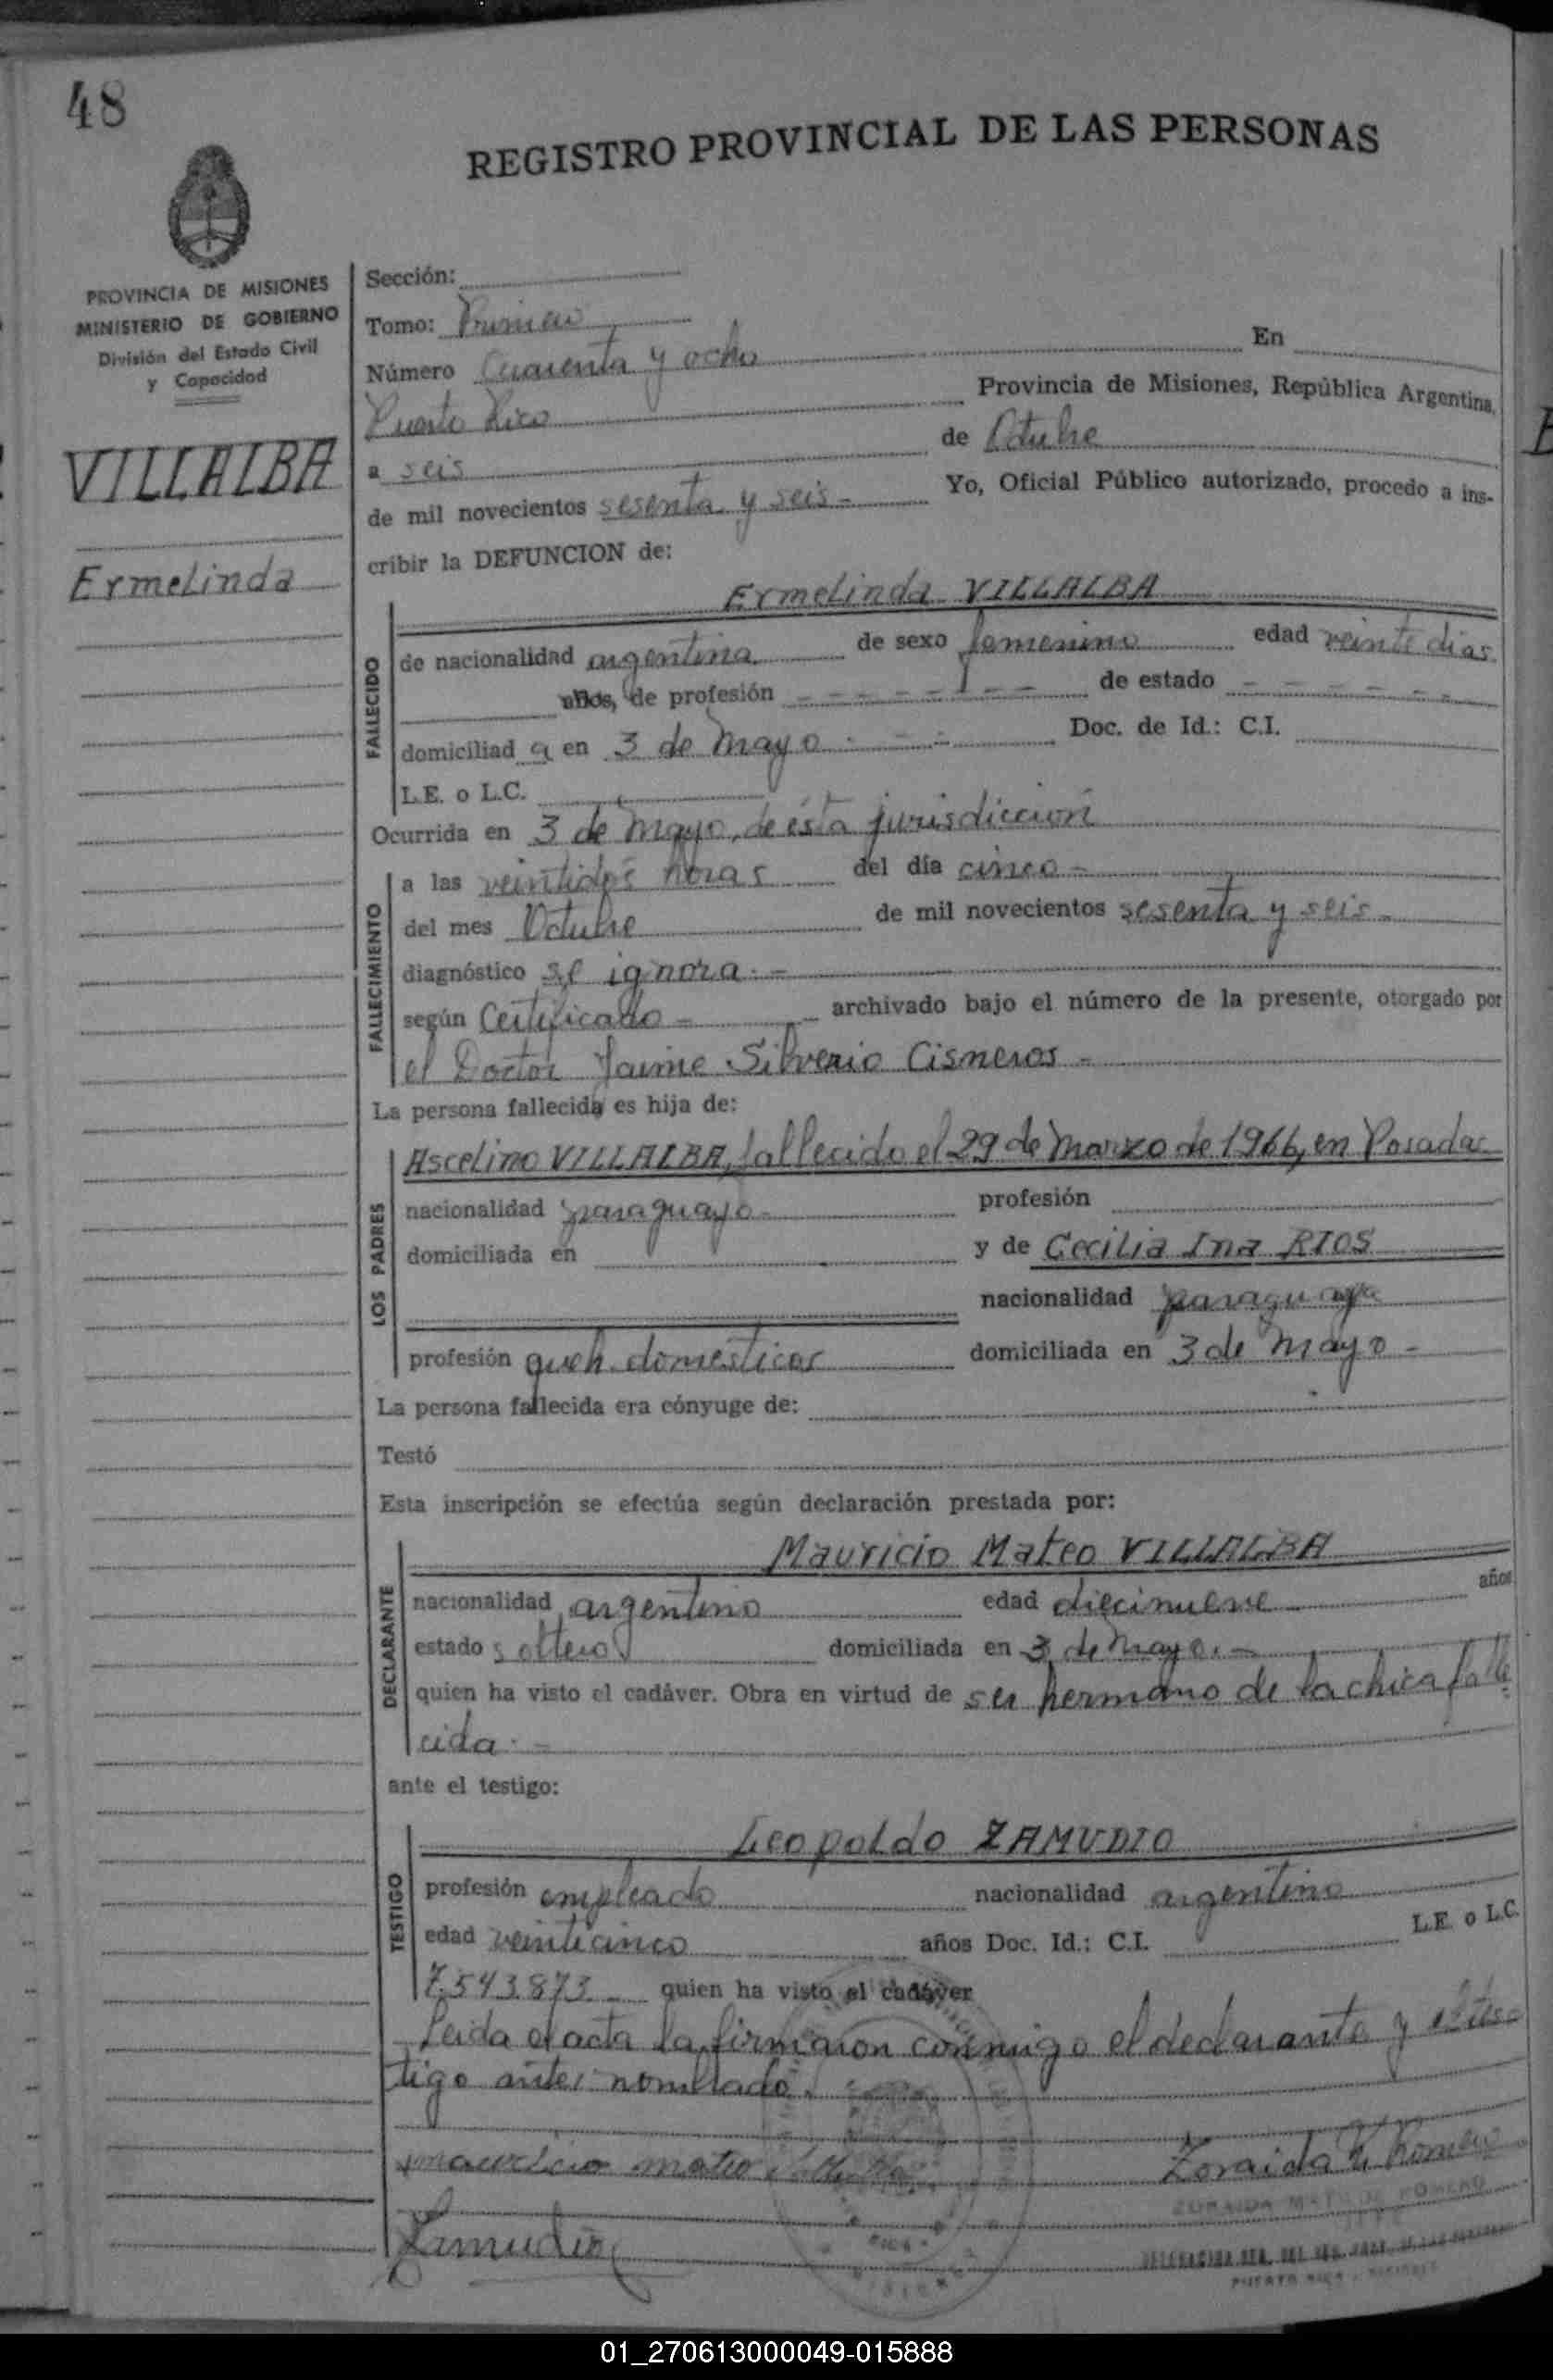 48
REGISTRO PROVINCIAL DE LAS PERSONAS
PROVINCIA DE MISIONES
MINISTERIO DE GOBIERNO
División del Estado Civil
y Capacidad
VILLALBA
Ermelinda
Sección:
Tomo: Primero
Número Cuarenta y ocho En
Puerto Rico Provincia de Misiones, República Argentina,
a seis de Octubre
de mil novecientos sesenta y seis.- Yo, Oficial Público autorizado, procedo a ins-
cribir la DEFUNCION de:
Ermelinda VILLALBA
FALLECIDO
de nacionalidad argentina de sexo femenino edad veinte dias
años, de profesión - - - - - - - de estado - - - - - -
domiciliad a en 3 de Mayo.- - - Doc. de Id.: C.I.
L.E. o L.C.
Ocurrida en 3 de Mayo, de ésta jurisdicción
FALLECIMIENTO
a las veintidós horas del día cinco -
del mes Octubre de mil novecientos sesenta y seis.-
diagnóstico se ignora.-
según Certificado - archivado bajo el número de la presente, otorgado por
el Doctor Jaime Silverio Cisneros -
La persona fallecida es hija de:
LOS PADRES
Ascelino VILLALBA, fallecido el 29 de Marzo de 1966, en Posadas
nacionalidad paraguayo- profesión
domiciliada en y de Cecilia Ina RIOS
nacionalidad paraguaya
profesión queh. domésticos domiciliada en 3 de Mayo -
La persona fallecida era cónyuge de:
Testó
Esta inscripción se efectúa según declaración prestada por:
DECLARANTE
Mauricio Mateo VILLALBA
nacionalidad argentino edad diecinueve años
estado soltero domiciliada en 3 de Mayo.-
quien ha visto el cadáver. Obra en virtud de ser hermano de la chica falle
cida.-
ante el testigo:
TESTIGO
Leopoldo ZAMUDIO
profesión empleado nacionalidad argentino
edad veinticinco años Doc. Id.: C.I. L.E. o L.C.
7.543.873 quien ha visto el cadáver
Leida el acta la firmaron conmigo el declarante y el tes
tigo antes nombrado.
mauricio mateo Villalba Zoraida M Romero
ZORAIDA MATILDE ROMERO
Zamudio
PUERTO RICO - MISIONES
01_270613000049-015888